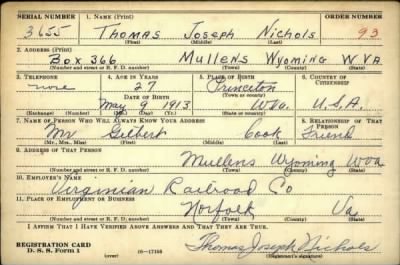 SERIAL NUMBER 1. NAME (Print) ORDER NUMBER
3655 Thomas Joseph Nichols 93
(First) (Middle) (Last)
2. ADDRESS (Print)
Box 366 Mullens Wyoming W VA
(Number and street or R. F. D. number) (Town) (County) (State)
3. TELEPHONE 4. AGE IN YEARS 5. PLACE OF BIRTH 6. COUNTRY OF CITIZENSHIP
none 27 Princeton
DATE OF BIRTH (Town or county)
May 9 1913 W Va. U.S.A.
(Exchange) (Number) (Mo.) (Day) (Yr.) (State or country)
7. NAME OF PERSON WHO WILL ALWAYS KNOW YOUR ADDRESS 8. RELATIONSHIP OF THAT PERSON
Mr Gilbert Cook Friend
(Mr., Mrs., Miss) (First) (Middle) (Last)
9. ADDRESS OF THAT PERSON
Mullens Wyoming W Va
(Number and street or R. F. D. number) (Town) (County) (State)
10. EMPLOYER'S NAME
Virginian Railroad Co
11. PLACE OF EMPLOYMENT OR BUSINESS
Norfolk Va
(Number and street or R. F. D. number) (Town) (County) (State)
I AFFIRM THAT I HAVE VERIFIED ABOVE ANSWERS AND THAT THEY ARE TRUE.
REGISTRATION CARD Thomas Joseph Nichols
D. S. S. Form 1 (over) 16—17105 (Registrant's signature)